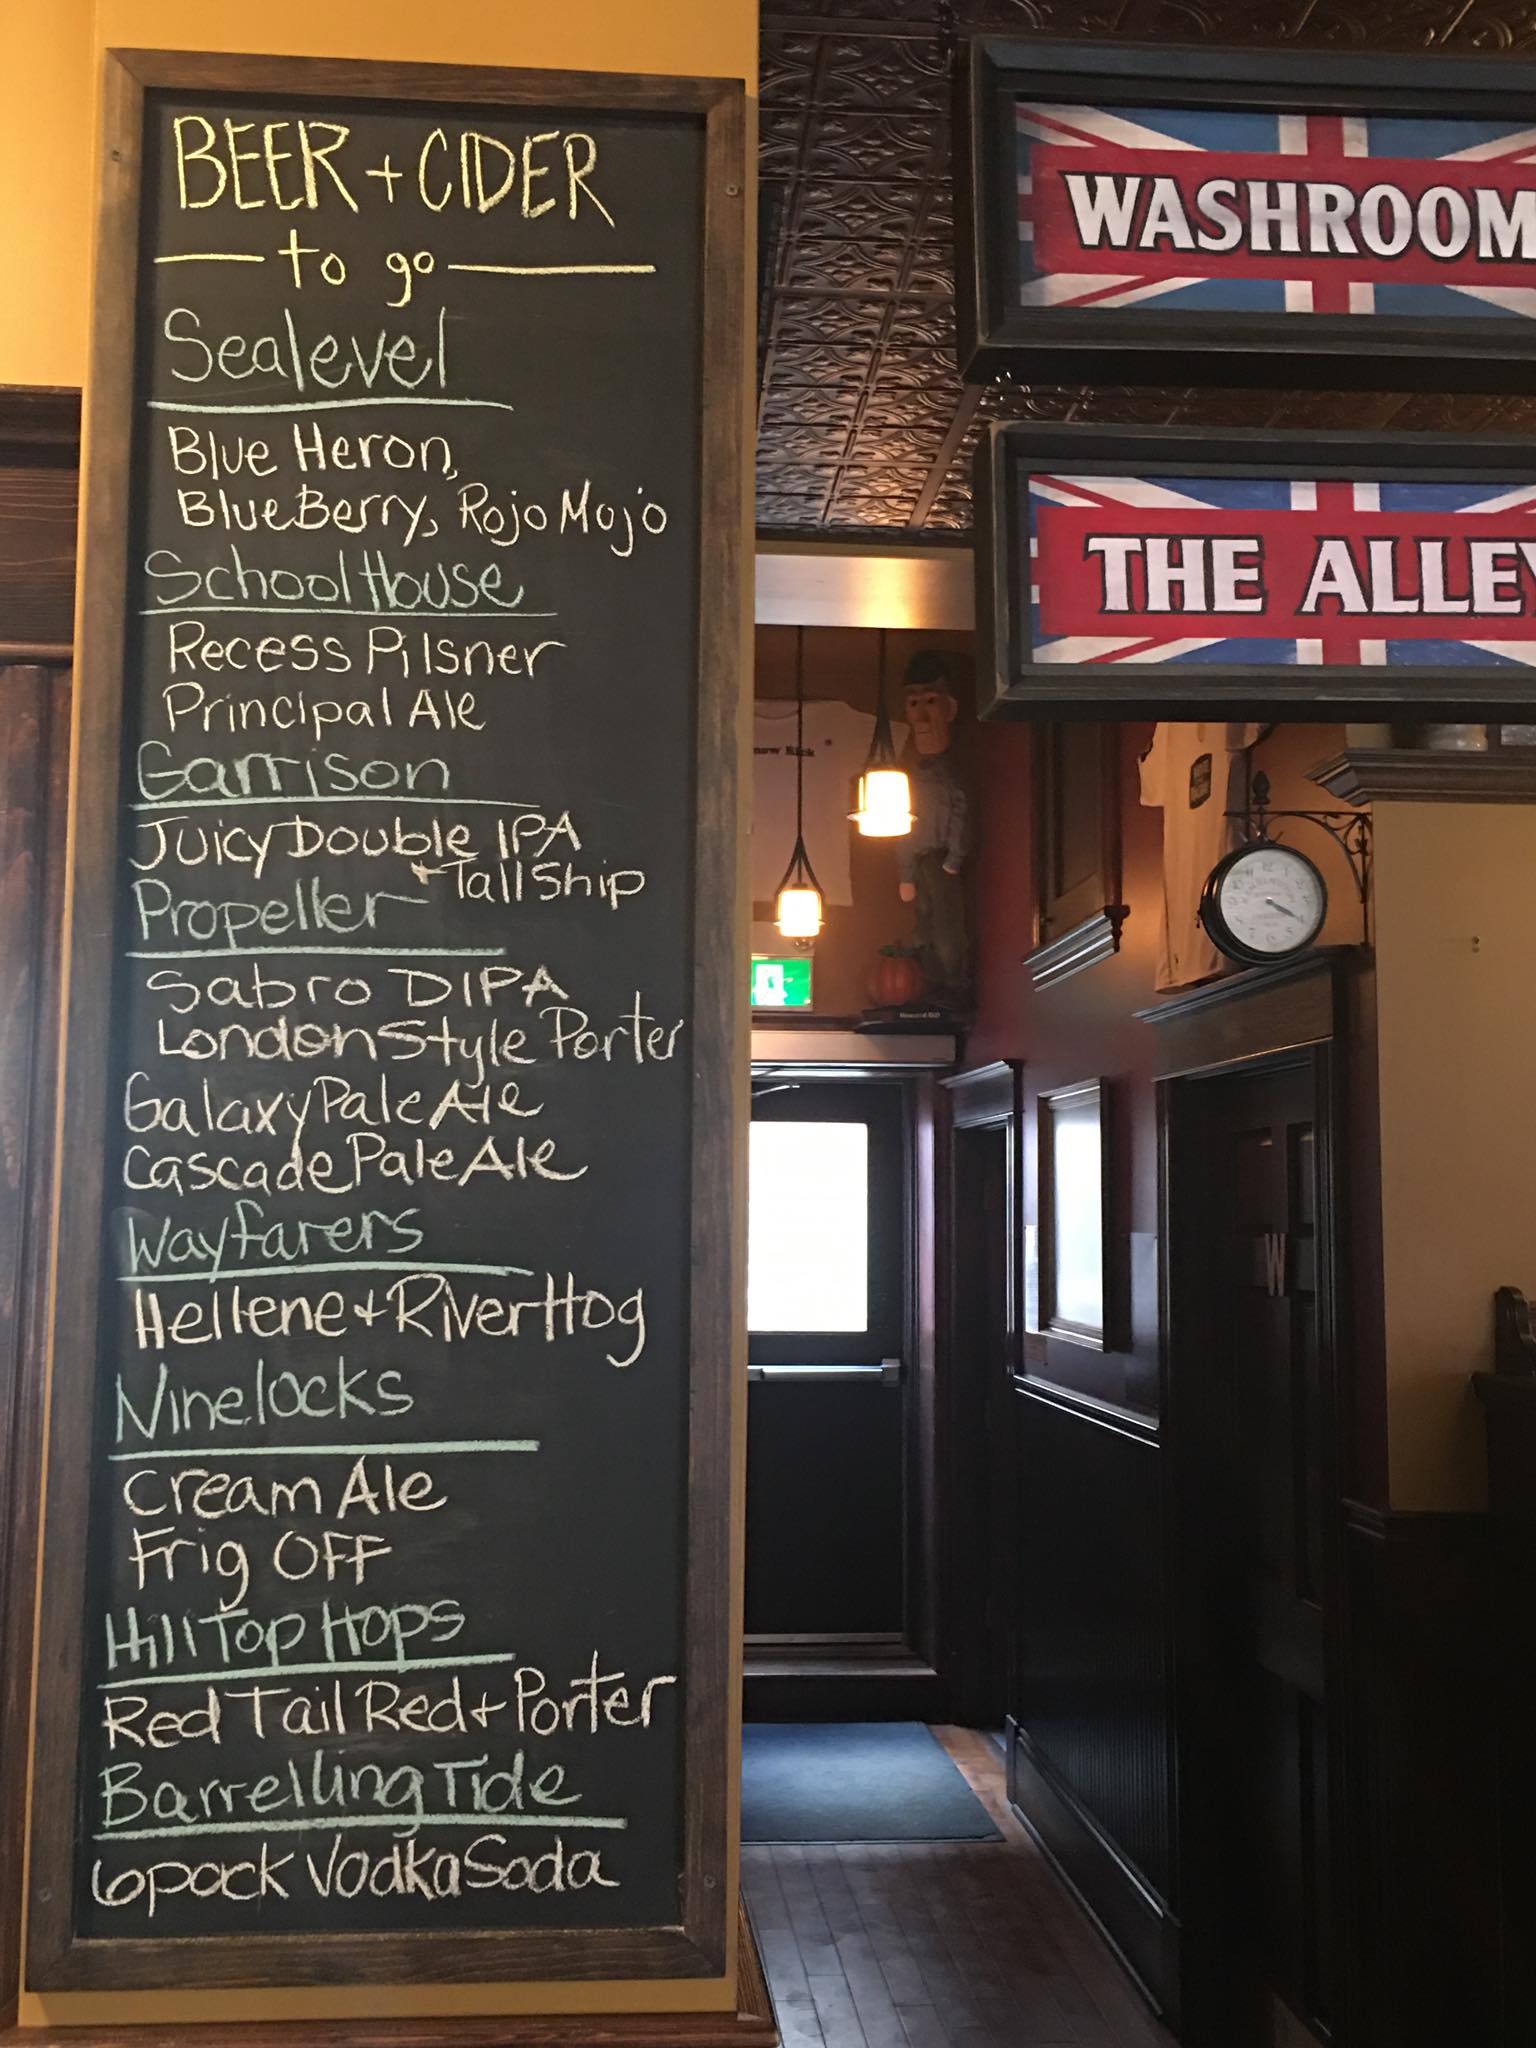 BEER + CIDER
to go
Sealevel
Blue Heron,
BlueBerry, Rojo Mojo
School House
Recess Pilsner
Principal Ale
Garrison
Juicy Double IPA
+ Tall Ship
Propeller
Sabro DIPA
London Style Porter
Galaxy Pale Ale
Cascade Pale Ale
Wayfarers
Hellene + River Hog
Ninelocks
Cream Ale
Frig OFF
Hill Top Hops
Red Tail Red + Porter
Barrelling Tide
6pack Vodka Soda
WASHROOM
THE ALLEY
W